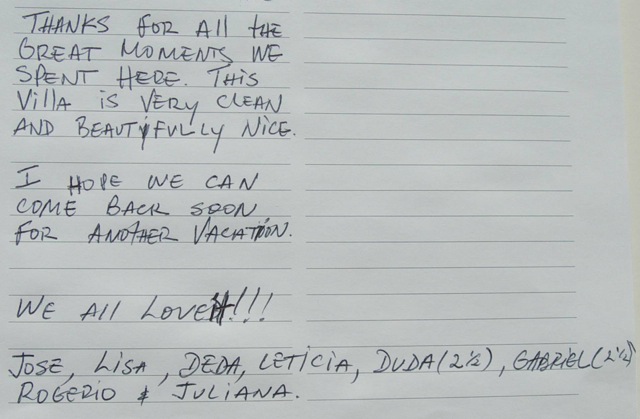 THANKS FOR All tHE
GREAT MOMENTS WE
SPENT HERE. THiS
Villa iS VERY CLEAN
AND BEAUTiFULLY NiCE.
I HOPE WE CAN
COME BACK SOON
FOR ANOTHER VACATiON.
WE All LOVE it!!!
JOSE, LiSA, DEDA, LETICIA, DUDA (2½), GABRiEL (2½)
ROGERiO & JULiANA.